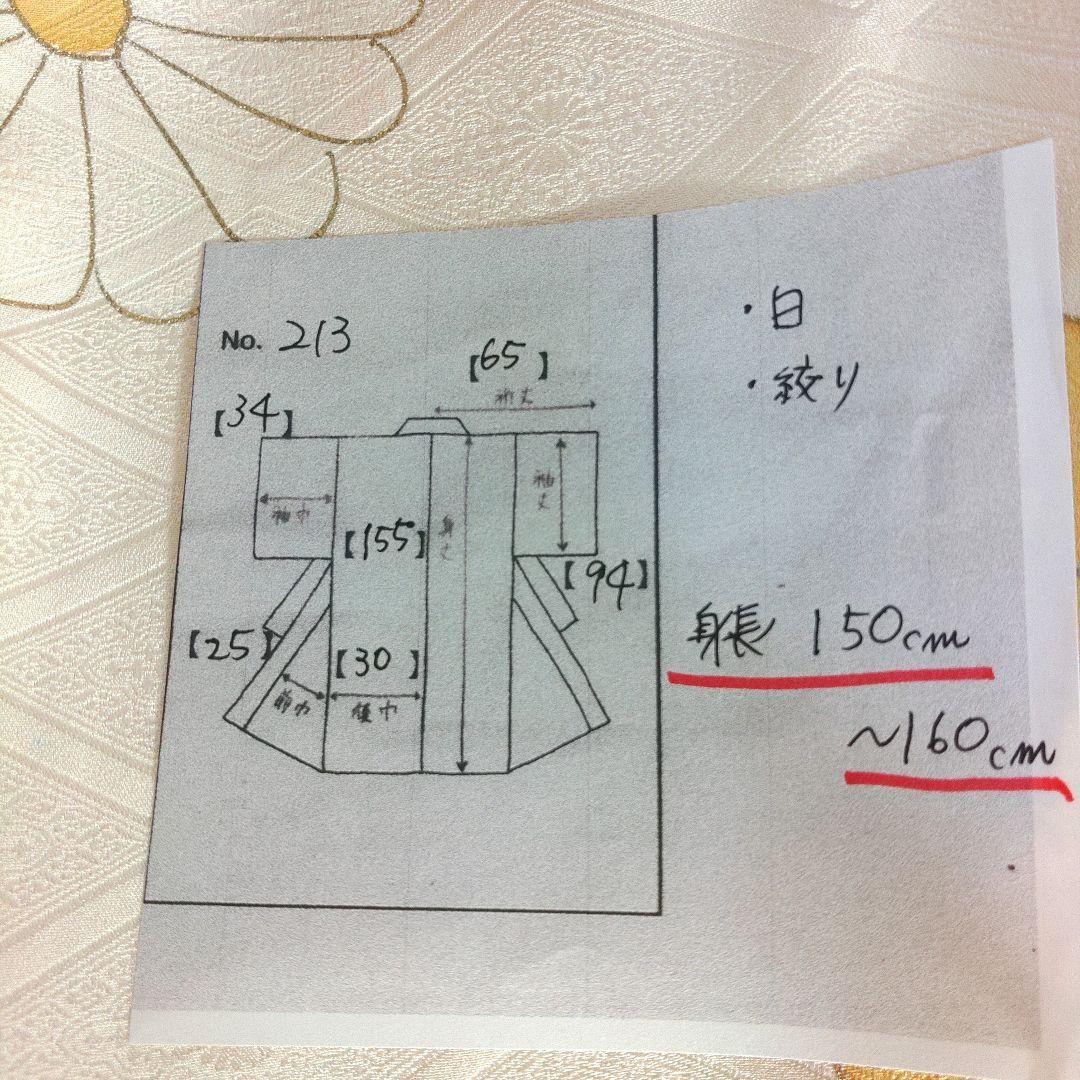 No. 213
【65】
裄丈
【34】
袖巾
袖丈
【155】
身丈
【94】
【25】
【30】
前巾
後巾
・白
・絞り
身長 150cm
~160cm